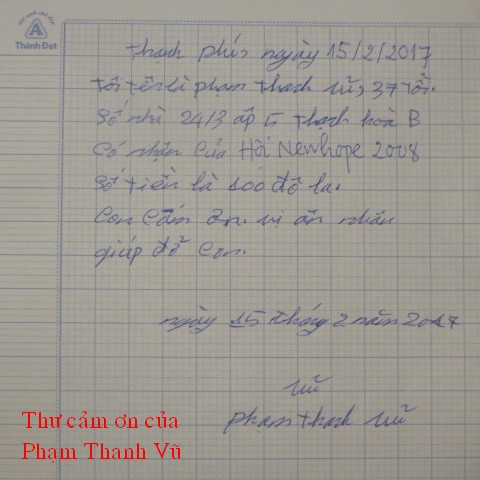 Thành Đạt
thanh phús ngày 15/2/2017
tôi tên là phạm thanh vũ, 37 tồi.
số nhà 24/3 ấp 5 thạnh hoà B
Có nhận của Hội Newhope 2008
số tiền là 100 đô la.
Con cắm ơn. vị ân nhân
giáp đỗ con.
ngày 15 tháng 2 năm 2017
vũ
phạm thanh vũ
Thư cảm ơn của
Phạm Thanh Vũ